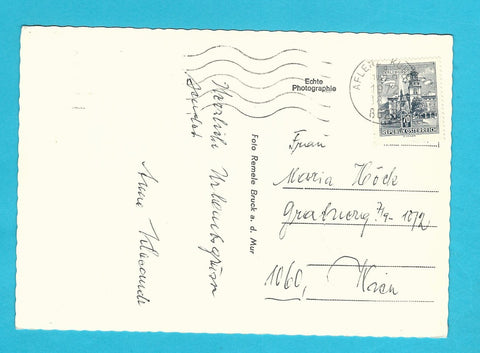 Herzliche Urlaubsgrüße
sendet
Anna
Echte
Photographie
Foto Remele Bruck a. d. Mur
AFLENZ, K
REPUBLIK ÖSTERREICH
Frau
Maria Höck
1060, Wien